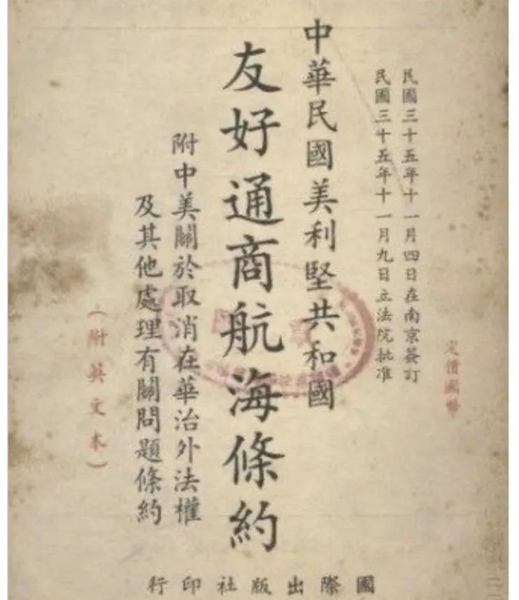 民國三十五年十一月四日在南京簽訂
民國三十五年十一月九日立法院批准
中華民國美利堅共和國
友好通商航海條約
附中美關於取消在華治外法權
及其他處理有關問題條約
（附英文本）
定價國幣
國際出版社印行